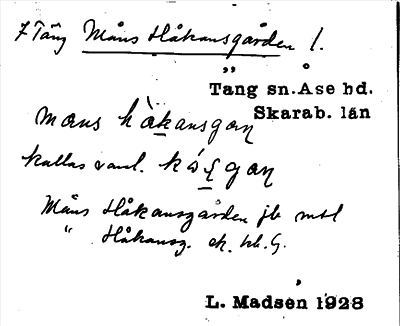 7 Täng Måns Håkansgården 1.
Täng sn. Åse hd.
Skarab. län
mɑns hàkansgan
kallas vanl. kåsgan
Måns Håkansgården jb mtl
" Håkansg. ek. bl. G.
L. Madsén 1928